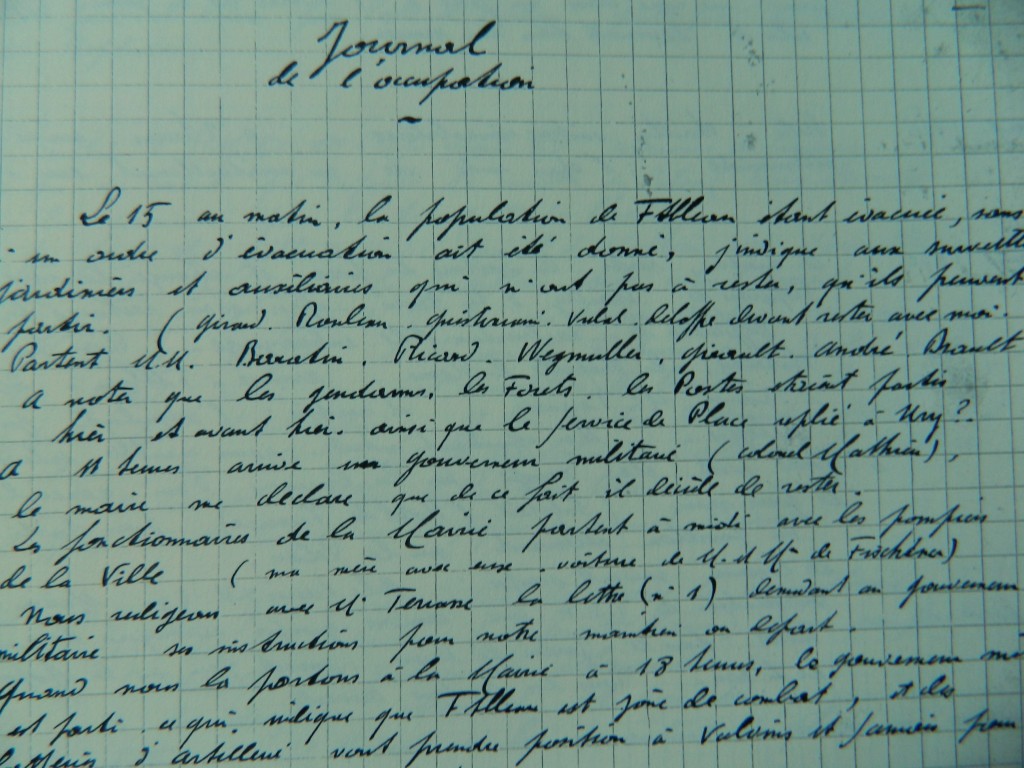 Journal
de l'occupation
Le 15 au matin, la population de F'bleau étant évacuée, sans
un ordre d'évacuation ait été donné, j'indique aux
jardiniers et auxiliaires qui n'ont pas à rester, qu'ils peuvent
partir. (Girard. Rouleau. Vidal. Deloffe devant rester avec moi.
Partent M.M. Barratin. Ricard. Wegmuller, Girault. André. Drault
A noter que les gendarmes, les Forêts, les Postes étaient partis
hier et avant hier. ainsi que le Service de Place replié à Ury?
A 11 heures arrive un gouverneur militaire (colonel Mathieu),
le maire me déclare que de ce fait il décide de rester.
Les fonctionnaires de la Mairie partent à midi avec les pompiers
de la Ville (ma mère avec eux. voiture de M. et Mme de Fischtner)
Nous redigeons avec Mr Terrasse la lettre (n° 1) demandant au gouverneur
militaire ses instructions pour notre maintien ou départ.
Quand nous la portons à la Mairie à 18 heures, le gouverneur
est parti. ce qui indique que F'bleau est zône de combat, et des
d'artillerie vont prendre position à Valvins et Samois pour